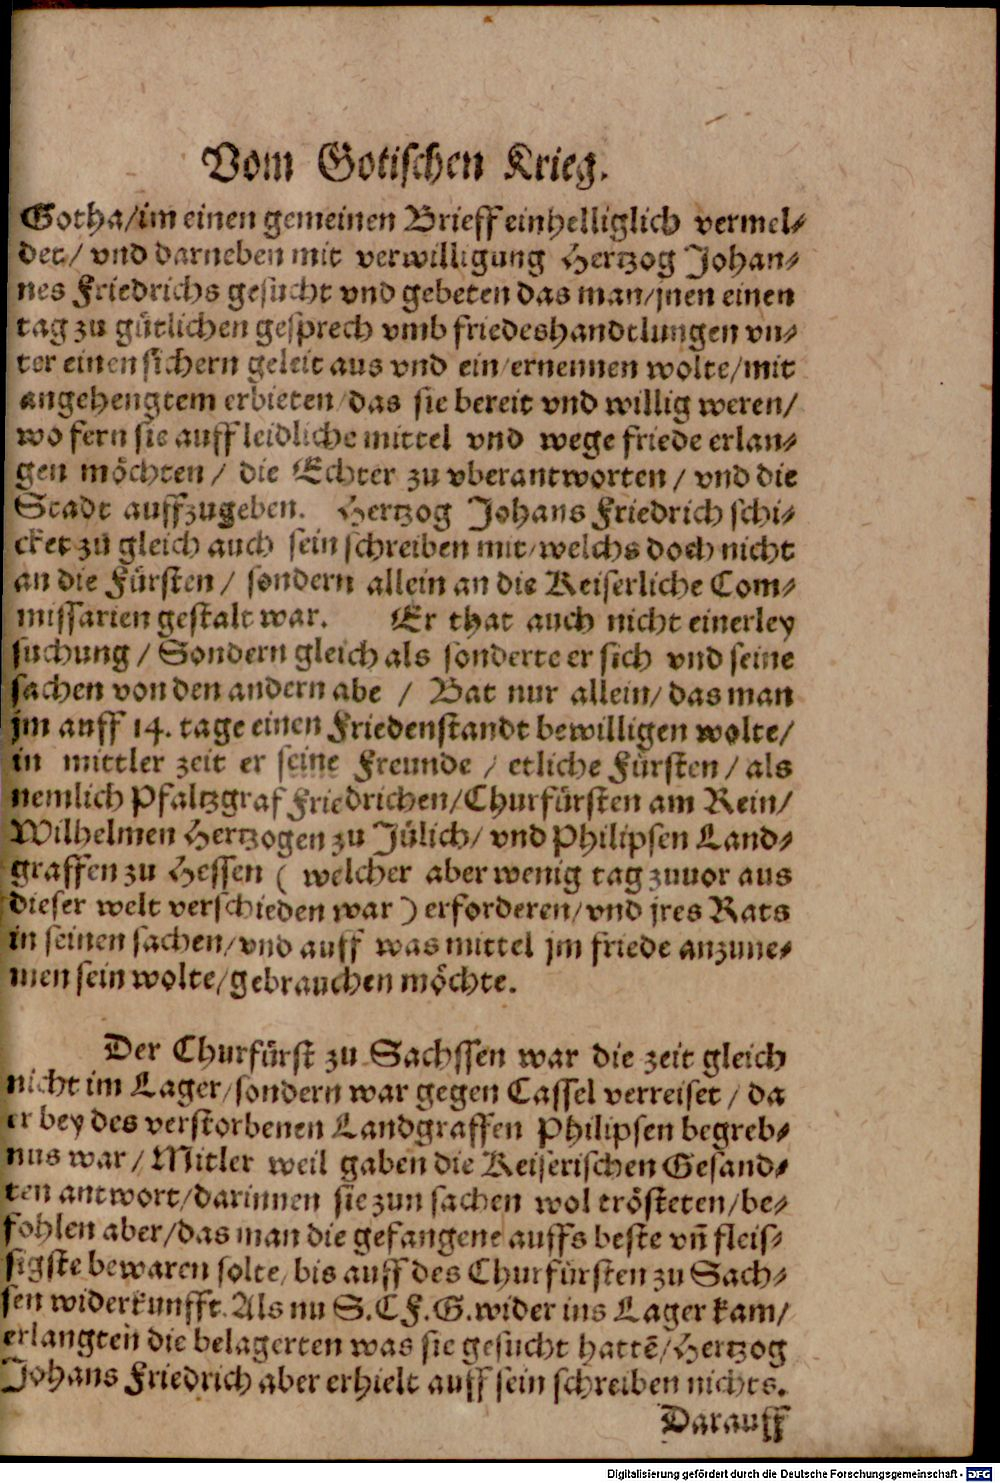 Vom Gotischen Krieg.
Gotha/im einen gemeinen Brieff einhelliglich vermel⸗
det/ vnd darneben mit verwilligung Hertzog Johan⸗
nes Friedrichs gesucht vnd gebeten das man/jnen einen
tag zu gütlichen gesprech vmb friedeshandtlungen vn⸗
ter einen sichern geleit aus vnd ein/ernennen wolte/mit
angehengtem erbieten/das sie bereit vnd willig weren/
wo fern sie auff leidliche mittel vnd wege friede erlan⸗
gen möchten / die Echter zu vberantworten / vnd die
Stadt auffzugeben. Hertzog Johans Friedrich schi⸗
cket zu gleich auch sein schreiben mit/welchs doch nicht
an die Fürsten / sondern allein an die Keiserliche Com⸗
missarien gestalt war. Er that auch nicht einerley
suchung / Sondern gleich als sonderte er sich vnd seine
sachen von den andern abe / Bat nur allein/das man
jm auff 14. tage einen Friedenstandt bewilligen wolte/
in mittler zeit er seine Freunde / etliche Fürsten / als
nemlich Pfaltzgraf Friedrichen/Churfürsten am Rein/
Wilhelmen Hertzogen zu Jülich/ vnd Philipsen Land⸗
graffen zu Hessen ( welcher aber wenig tag zuuor aus
dieser welt verschieden war ) erforderen/vnd jres Rats
in seinen sachen/vnd auff was mittel jm friede anzune⸗
men sein wolte/gebrauchen möchte.
Der Churfürst zu Sachssen war die zeit gleich
nicht im Lager/sondern war gegen Cassel verreiset / da
er bey des verstorbenen Landgraffen Philipsen begreb⸗
nus war / Mitler weil gaben die Keiserischen Gesand⸗
ten antwort/darinnen sie zun sachen wol trösteten/be⸗
fohlen aber/das man die gefangene auffs beste vñ fleis⸗
sigste bewaren solte/bis auff des Churfürsten zu Sach⸗
sen widerkunfft. Als nu S.C.F.G. wider ins Lager kam/
erlangten die belagerten was sie gesucht hattẽ/Hertzog
Johans Friedrich aber erhielt auff sein schreiben nichts.
Darauff
Digitalisierung gefördert durch die Deutsche Forschungsgemeinschaft - DFG